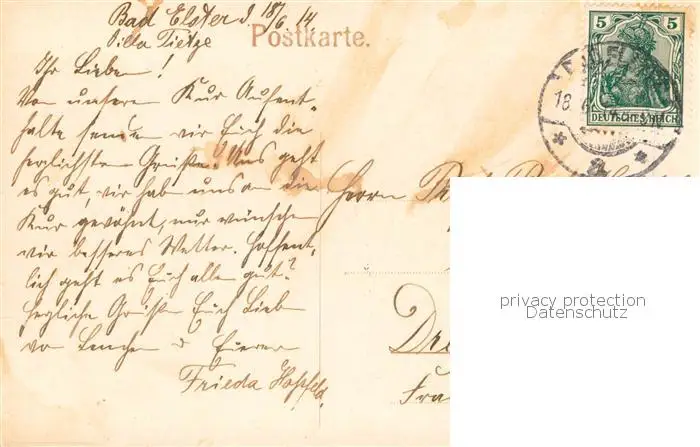 Bad Elster d. 18/6 14
Villa Tietze
Postkarte.
Ihr Lieben!
Von unserem Kur Aufent-
halte senden wir Euch die
herzlichsten Grüße. Uns geht
es gut, wir hab uns an die
Kur gewöhnt, nur wünschen
wir besseres Wetter. Hoffent-
lich geht es Euch allen gut?
herzliche Grüße Euch Lieben
von Lenchen u Eurer
Frieda Hoffeld.
5 5
DEUTSCHES REICH
18.
Herrn
Dre
Fra
privacy protection
Datenschutz